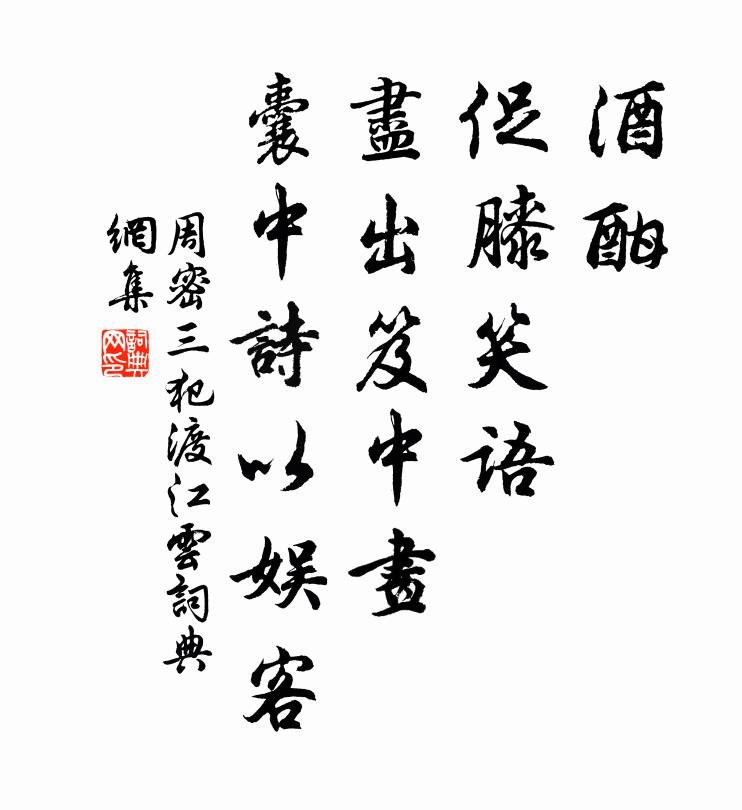 酒酣
促膝笑語
盡出笈中畫
囊中詩以娛客
周密三犯渡江雲詞典
網集
詞典
网印